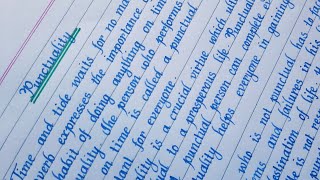 Punctuality
Time and tide waits for no ma
verb expresses the importance
habit of doing anything on tim
uality. The person who performs
on time is called a punctual
tant for everyone.
ality is a crucial virtue which all
ial to a prosperous life. Punctual
punctual person can complete a
tuality helps everyone in gaining
who is not punctual has to
ms and failures in his
destination of life